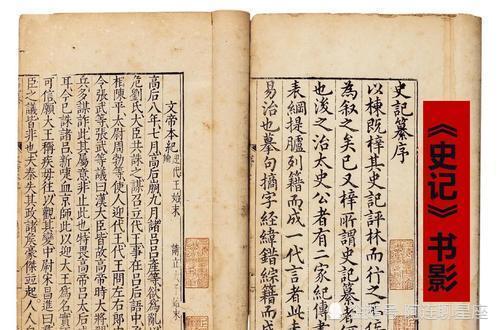 《史记》书影
史記纂序
以棟既梓其史記評林而行之
為叙之矣已又梓所謂史記纂
也後之治太史公者有二家紀傳書
表綱提臚列籍而成一代言者此
易治也摹句摘字經緯錯綜
文帝本紀
高后八年七月高后崩九月諸呂呂產等欲為亂
危劉氏大臣共誅之謀召立代王事在呂后語
相陳平太尉周勃等使人迎代王代王問左右郎
令張武等張武等議曰漢大臣皆故高帝時大將
兵多謀詐此其屬意非止此也特畏高帝呂太后
耳今已誅諸呂新喋血京師此以迎大王為名實
可信願大王稱疾毋往以觀其變中尉宋昌進曰
臣之議皆非也夫秦失其政諸侯豪傑並起人人